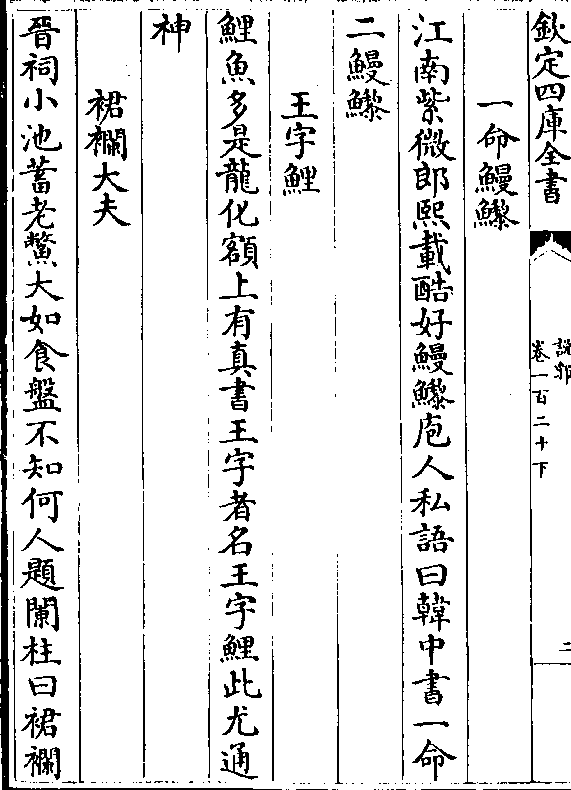 欽定四庫全書
說郛
卷一百二十下
二
一命鰻鱺
江南紫微郎熙載酷好鰻鱺庖人私語曰韓中書一命
二鰻鱺
王字鯉
鯉魚多是龍化額上有真書王字者名王字鯉此尤通
神
裙襴大夫
晉祠小池蓄老鱉大如食盤不知何人題闌柱曰裙襴